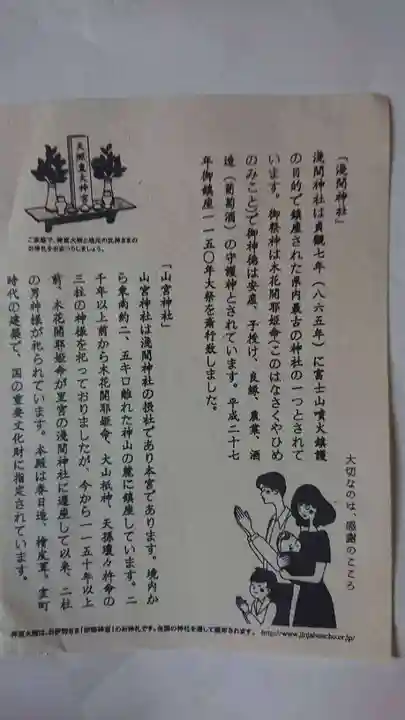 「浅間神社」
浅間神社は貞観七年（八六五年）に富士山噴火鎮護
の目的で鎮座された県内最古の神社の一つとされて
います。御祭神は木花開耶姫命(このはなさくやひめ
のみこと)で御神徳は安産、子授け、良縁、農業、酒
造（葡萄酒）の守護神とされています。平成二十七
年御鎮座一一五〇年大祭を斎行致しました。
「山宮神社」
山宮神社は浅間神社の摂社であり本宮であります。境内か
ら東南約二、五キロ離れた神山の麓に鎮座しています。二
千年以上前から木花開耶姫命、大山祇神、天孫瓊々杵命の
三柱の神様を祀っておりましたが、今から一一五十年以上
前、木花開耶姫命が里宮の浅間神社に遷座して以来、二柱
の男神様が祀られています。本殿は春日造、檜皮葺。室町
時代の建築で、国の重要文化財に指定されています。
大切なのは、感謝のこころ
天照皇大神宮
ご家庭で、神宮大麻と地元の氏神さまの
お神札をおまつりしましょう。
神宮大麻は、お伊勢さま「伊勢神宮」のお神札です。全国の神社を通して頒布されます。 http://www.jinjahoncho.or.jp/